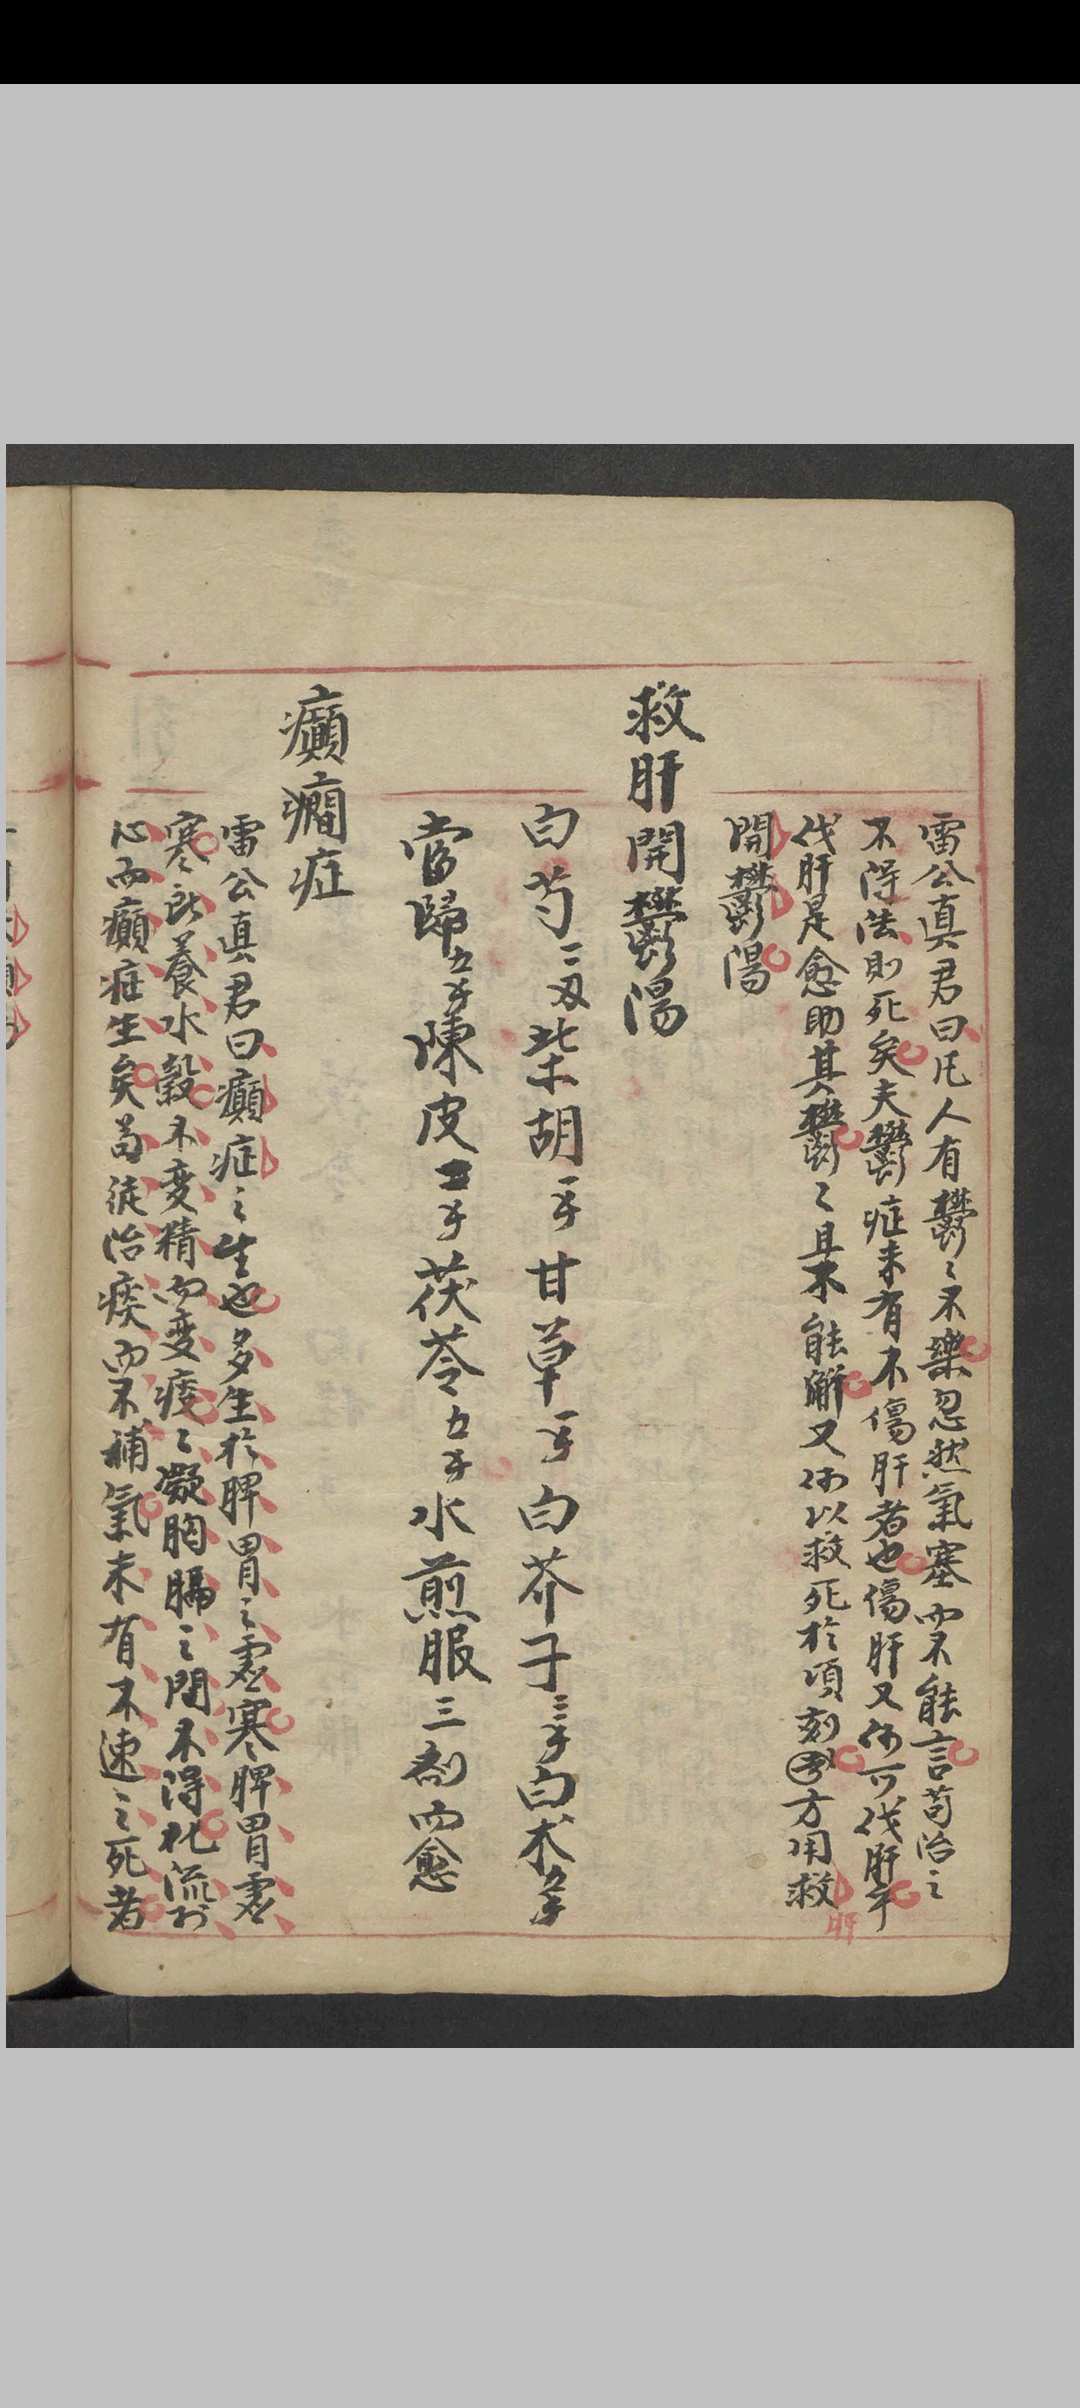 雷公真君曰凡人有鬱〻不樂忽然氣塞而不能言苟治之
不得法則死矣夫鬱症未有不傷肝者也傷肝又何可伐肝乎
伐肝是愈助其鬱〻且不能觧又何以救死於頃刻方用救肝
開鬱湯
救肝開鬱湯
白芍二刄柴胡一子甘草一子白芥子三子白朮五子
當歸五子陳皮二子茯苓五子水煎服三劑而愈
癲癇症
雷公真君曰癲症之生也多生於脾胃之虛寒脾胃虛
寒所養水穀不變精而變痰〻凝胸膈之間不得化流於
心而癲症生矣苟徒治痰而不補氣未有不速之死者